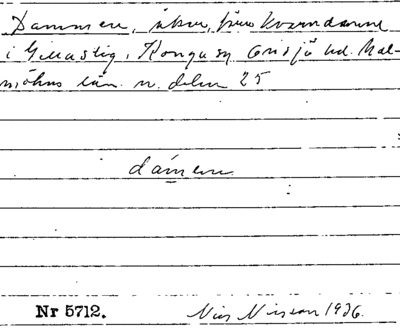 Dammen, åker, förr kvarndamm
i Gillastig, Konga sn Onsjö hd. Mal-
möhus län. n. delen 25
dámen
Nr 5712. Nils Nilsson 1936.